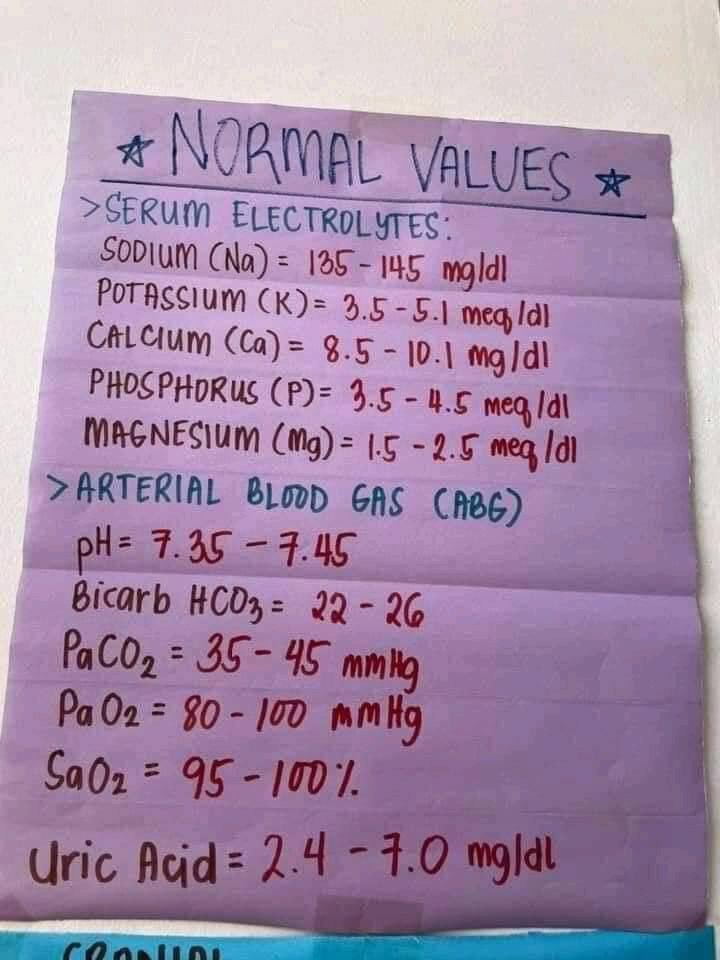 ☆ NORMAL VALUES ☆
>SERUM ELECTROLYTES:
SODIUM (Na) = 135 - 145 mg/dl
POTASSIUM (K) = 3.5 - 5.1 meq/dl
CALCIUM (Ca) = 8.5 - 10.1 mg/dl
PHOSPHORUS (P) = 3.5 - 4.5 meq/dl
MAGNESIUM (Mg) = 1.5 - 2.5 meq/dl
>ARTERIAL BLOOD GAS (ABG)
pH = 7.35 - 7.45
Bicarb HCO3 = 22 - 26
PaCO2 = 35 - 45 mmHg
PaO2 = 80 - 100 mmHg
SaO2 = 95 - 100%
Uric Acid = 2.4 - 7.0 mg/dl
CRANIAL